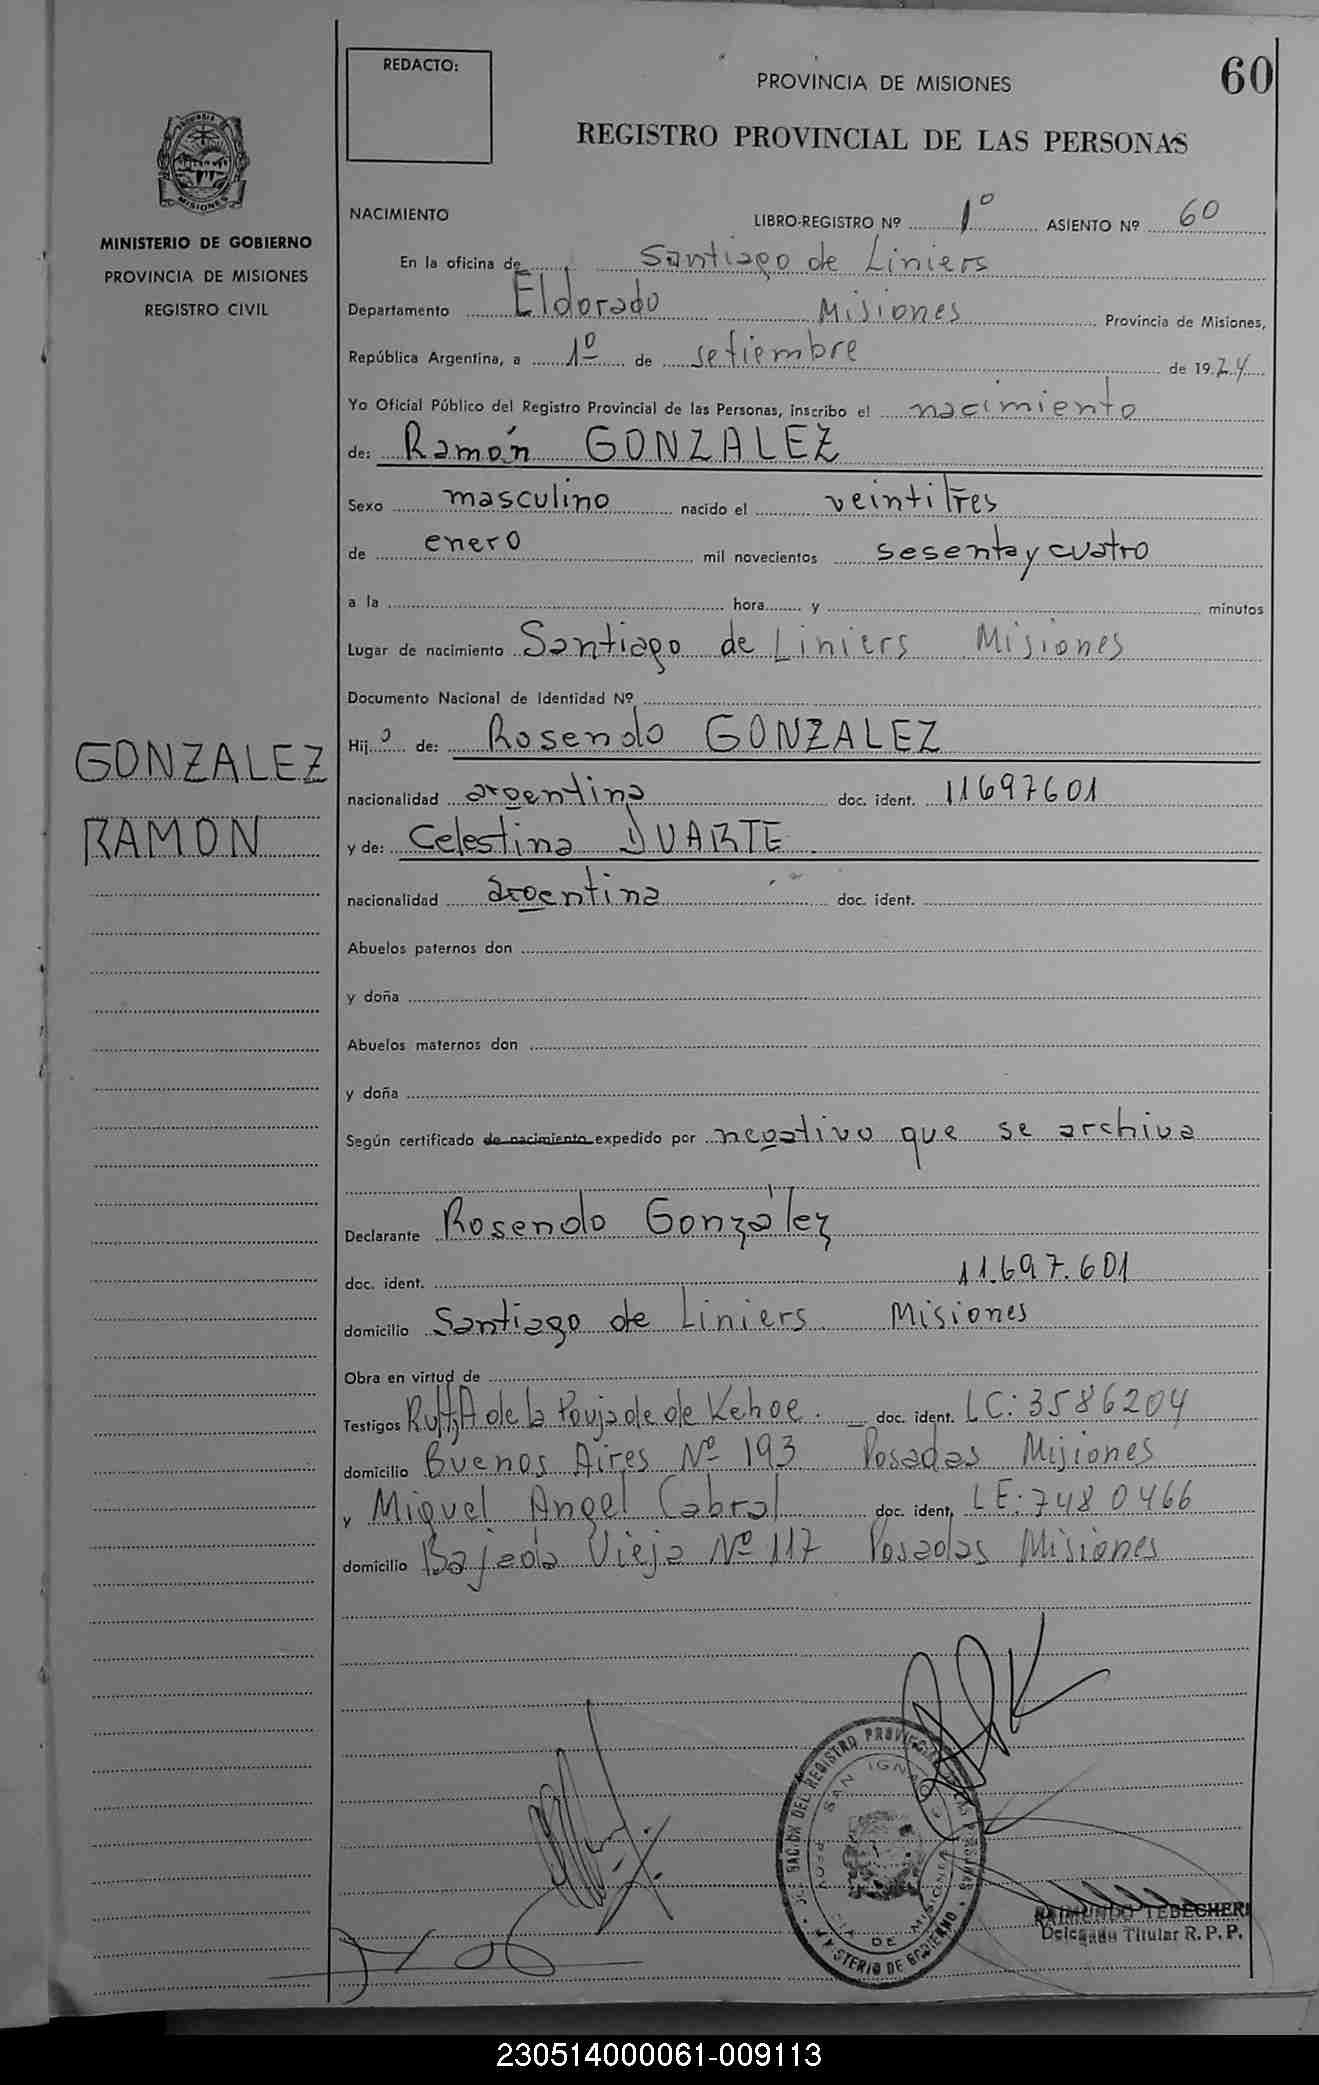 REDACTO:
PROVINCIA DE MISIONES
60
REGISTRO PROVINCIAL DE LAS PERSONAS
MISIONES
MINISTERIO DE GOBIERNO
PROVINCIA DE MISIONES
REGISTRO CIVIL
NACIMIENTO
LIBRO-REGISTRO Nº 1º ASIENTO Nº 60
En la oficina de Santiago de Liniers
Departamento Eldorado Misiones Provincia de Misiones,
República Argentina, a 1º de setiembre de 1974
Yo Oficial Público del Registro Provincial de las Personas, inscribo el nacimiento
de: Ramón GONZALEZ
Sexo masculino nacido el veintitres
de enero mil novecientos sesenta y cuatro
a la hora y minutos
Lugar de nacimiento Santiago de Liniers Misiones
Documento Nacional de Identidad Nº
GONZALEZ
RAMON
Hijo de: Rosendo GONZALEZ
nacionalidad argentina doc. ident. 11697601
y de: Celestina DUARTE
nacionalidad argentina doc. ident.
Abuelos paternos don
y doña
Abuelos maternos don
y doña
Según certificado de nacimiento expedido por negativo que se archiva
Declarante Rosendo González
doc. ident. 11.697.601
domicilio Santiago de Liniers Misiones
Obra en virtud de
Testigos de la Poujade de Kehoe. doc. ident. LC: 3586204
domicilio Buenos Aires Nº 193 Posadas Misiones
y Miguel Angel Cabral doc. ident. LE: 7480466
domicilio Bajada Vieja Nº 117 Posadas Misiones
DEL REGISTRO PROVINCIAL DE LAS PERSONAS
MINISTERIO DE GOBIERNO
SAN IGNACIO
DE MISIONES
RAIMUNDO TEBECHERI
Delegado Titular R. P. P.
230514000061-009113